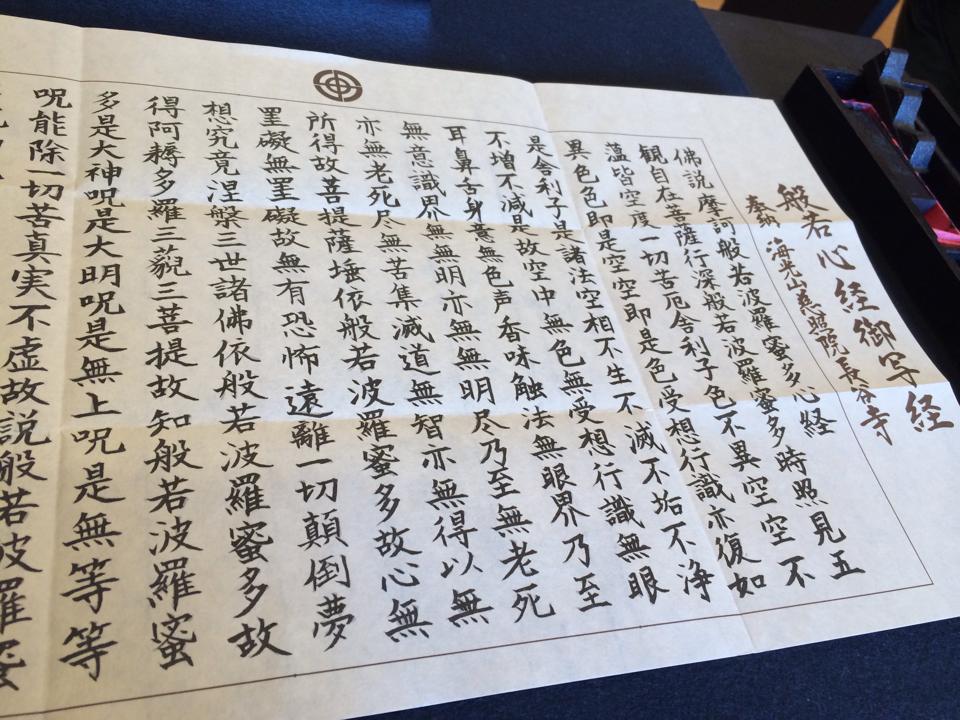 般若心経御写経
奉納 海光山慈照院長谷寺
佛説摩訶般若波羅蜜多心経
観自在菩薩行深般若波羅蜜多時照見五
蘊皆空度一切苦厄舎利子色不異空空不
異色色即是空空即是色受想行識亦復如
是舎利子是諸法空相不生不滅不垢不浄
不増不減是故空中無色無受想行識無眼
耳鼻舌身意無色声香味触法無眼界乃至
無意識界無無明亦無無明尽乃至無老死
亦無老死尽無苦集滅道無智亦無得以無
所得故菩提薩埵依般若波羅蜜多故心無
罣礙無罣礙故無有恐怖遠離一切顛倒夢
想究竟涅槃三世諸佛依般若波羅蜜多故
得阿耨多羅三藐三菩提故知般若波羅蜜
多是大神呪是大明呪是無上呪是無等等
呪能除一切苦真実不虚故説般若波羅蜜